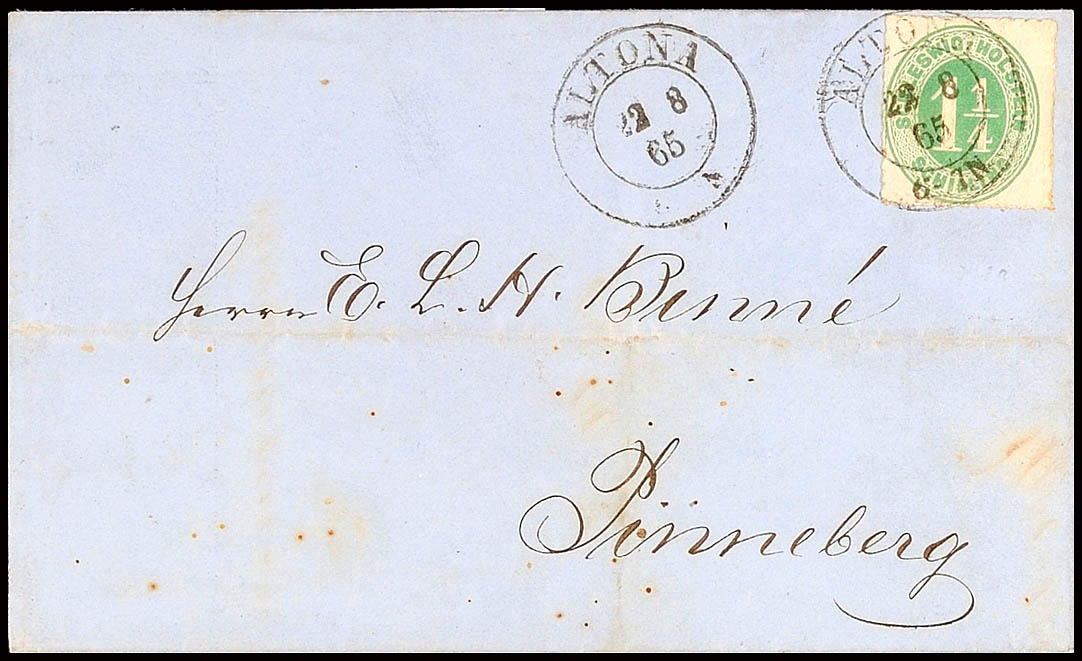 ALTONA
22 8
65
ALTONA
22 8
65
6 - 7 N
SCHLESWIG-HOLSTEIN
1 1/4
SCHILLING
Herrn E. L. H. Binné
Pinneberg